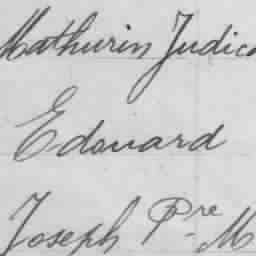 Mathurin Judica
Edouard
Joseph Pre M